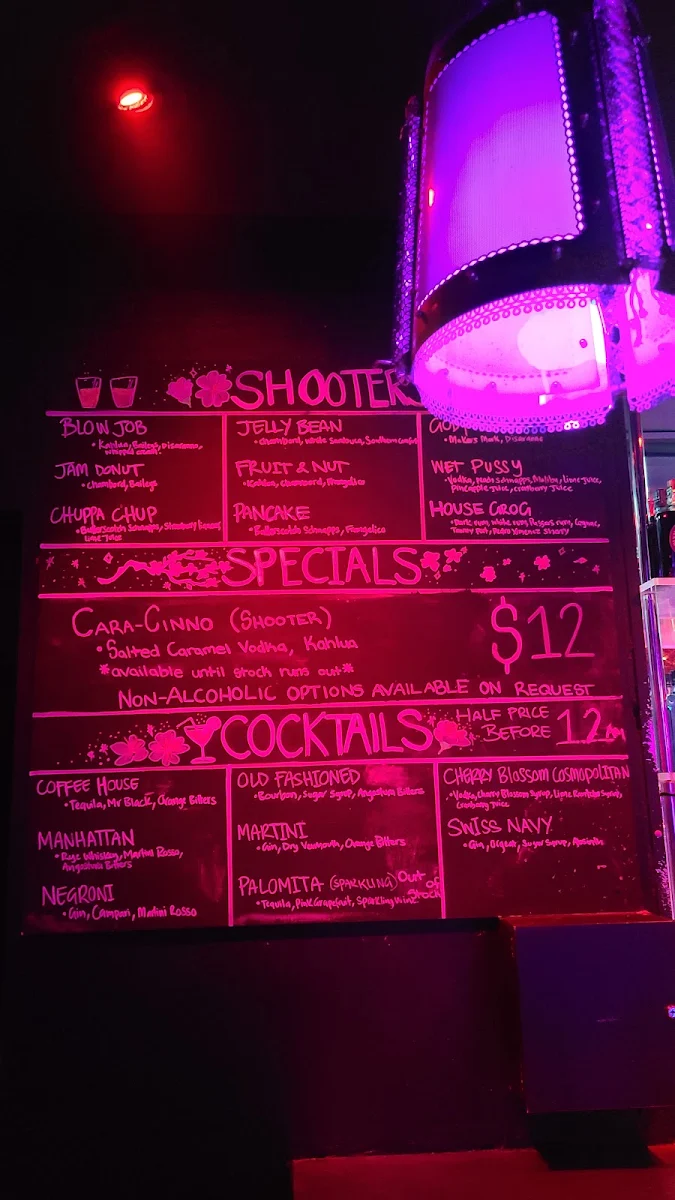 SHOOTER
BLOW JOB
• Kahlua, Baileys, Disaronno,
whipped cream.
JAM DONUT
• Chambord, Baileys
CHUPPA CHUP
• Butterscotch Schnapps, Strawberry
Lime Juice
JELLY BEAN
• Chambord, white Sambuca, Southern
FRUIT & NUT
• Kahlua, Chambord, Frangelico
PANCAKE
• Butterscotch Schnapps, Frangelico
• Makers Mark, Disaronno
WET PUSSY
• Vodka, peach schnapps, Malibu, Lime Juice,
pineapple Juice, cranberry Juice
HOUSE GROG
• Dark rum, white rum, Passers rum, Cognac,
Tawny Port, Pedro Ximenez Sherry
SPECIALS
CARA-CINNO (SHOOTER)
• Salted Caramel Vodka, Kahlua
*available until stock runs out*
$12
NON-ALCOHOLIC OPTIONS AVAILABLE ON REQUEST
COCKTAILS
HALF PRICE
BEFORE 12AM
COFFEE HOUSE
• Tequila, Mr Black, Orange Bitters
MANHATTAN
• Rye Whiskey, Martini Rosso,
Angostura Bitters
NEGRONI
• Gin, Campari, Martini Rosso
OLD FASHIONED
• Bourbon, Sugar Syrup, Angostura Bitters
MARTINI
• Gin, Dry Vermouth, Orange Bitters
PALOMITA (SPARKLING) Out of Stock
• Tequila, Pink Grapefruit, Sparkling Wine
CHERRY Blossom COSMOPOLITAN
• Vodka, Cherry Blossom Syrup, Lime
Cranberry Juice
SWISS NAVY
• Gin, Orgeat, Sugar Syrup, Absinthe